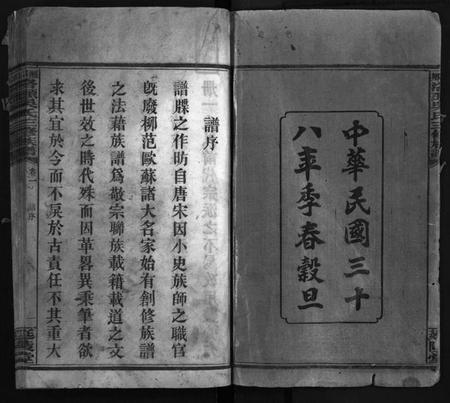 中華民國三十
八年季春穀旦
譜序
譜牒之作昉自唐宋因小史族師之職官
既廢柳范歐蘇諸大名家始有創修族譜
之法藉族譜爲敬宗聯族載籍載道之文
後世效之時代殊而因革畧異秉筆者欲
求其宜於今而不戾於古責任不其重大
譜序